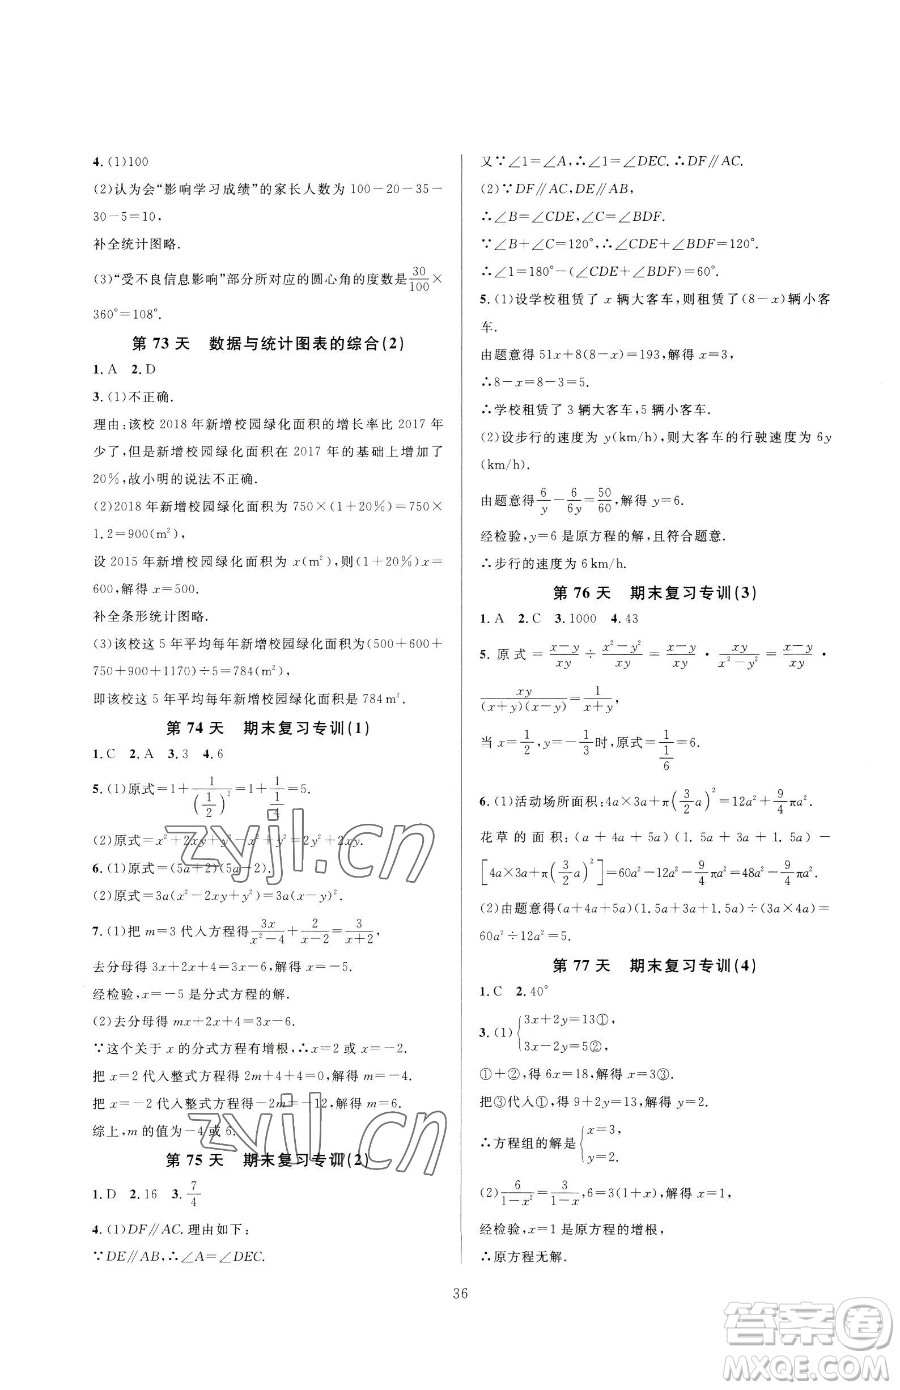 4. (1)100
(2)认为会“影响学习成绩”的家长人数为 100－20－35－
30－5＝10,
补全统计图略.
(3)“受不良信息影响”部分所对应的圆心角的度数是30/100×
360°＝108°.
第 73 天　数据与统计图表的综合(2)
1. A　2. D
3. (1)不正确.
理由:该校 2018 年新增校园绿化面积的增长率比 2017 年
少了,但是新增校园绿化面积在 2017 年的基础上增加了
20%,故小明的说法不正确.
(2)2018 年新增校园绿化面积为 750×(1＋20%)＝750×
1.2＝900(m²)
设 2015 年新增校园绿化面积为 x(m²),则 x(1＋20%)＝
600,解得 x＝500.
补全条形统计图略.
(3)该校这 5 年平均每年新增校园绿化面积为(500＋600＋
750＋900＋1170)÷5＝784(m²),
即该校这 5 年平均每年新增校园绿化面积是 784 m².
第 74 天　期末复习专训(1)
1. C　2. A　3. 3　4. 6
5. (1)原式＝1＋1/(1/2)²＝1＋1/(1/4)＝5.
(2)原式＝x²＋2xy＋y²－x²－y²＝2xy.
6. (1)原式＝(5a＋2)(5a－2).
(2)原式＝3a(x²－2xy＋y²)＝3a(x－y)².
7. (1)把 m＝3 代入方程得 3x/(x²－4)＋2/(x－2)＝3/(x＋2),
去分母得 3x＋2x＋4＝3x－6,解得 x＝－5,
经检验,x＝－5 是分式方程的解.
(2)去分母得 mx＋2x＋4＝3x－6.
∵这个关于 x 的分式方程有增根,∴x＝2 或 x＝－2.
把 x＝2 代入整式方程得 2m＋4＋4＝0,解得 m＝－4,
把 x＝－2 代入整式方程得－2m＝－12,解得 m＝6,
综上,m 的值为－4 或 6.
第 75 天　期末复习专训(2)
1. D　2. 16　3. 7/4
4. (1)DF∥AC.理由如下:
∵DE∥AB,∴∠A＝∠DEC.
又∵∠1＝∠A,∴∠1＝∠DEC.∴DF∥AC.
(2)∵DF∥AC,DE∥AB,
∴∠B＝∠CDE,∠C＝∠BDF.
∵∠B＋∠C＝120°,∴∠CDE＋∠BDF＝120°.
∴∠1＝180°－(∠CDE＋∠BDF)＝60°.
5. (1)设学校租赁了 x 辆大客车,则租赁了(8－x)辆小客
车.
由题意得 51x＋8(8－x)＝193,解得 x＝3,
∴8－x＝8－3＝5.
∴学校租赁了 3 辆大客车,5 辆小客车.
(2)设步行的速度为 y(km/h),则大客车的行驶速度为 6y
(km/h).
由题意得 6/y－6/6y＝50/60,解得 y＝6.
经检验,y＝6 是原方程的解,且符合题意.
∴步行的速度为 6 km/h.
第 76 天　期末复习专训(3)
1. A　2. C　3. 1000　4. 43
5. 原式＝(x－y)/xy÷(x²－y²)/xy＝(x－y)/xy·xy/(x²－y²)＝(x－y)/xy·
xy/((x＋y)(x－y))＝1/(x＋y),
当 x＝1/2,y＝－1/3时,原式＝1/(1/6)＝6.
6. (1)活动场所面积:4a×3a＋π(3/2 a)²＝12a²＋9/4πa².
花草的面积:(a＋4a＋5a)(1.5a＋3a＋1.5a)－
[4a×3a＋π(3/2 a)²]＝60a²－12a²－9/4πa²＝48a²－9/4πa².
(2)由题意得(a＋4a＋5a)(1.5a＋3a＋1.5a)÷(3a×4a)＝
60a²÷12a²＝5.
第 77 天　期末复习专训(4)
1. C　2. 40°
3. (1){3x＋2y＝13①,
3x－2y＝5②,
①＋②,得 6x＝18,解得 x＝3③.
把③代入①,得 9＋2y＝13,解得 y＝2.
∴方程组的解是{x＝3,
y＝2.
(2)6/(1－x²)＝3/(1－x),6＝3(1＋x),解得 x＝1,
经检验,x＝1 是原方程的增根,
∴原方程无解.
36
zyjl.cn
zyjl.cn
答案圈
MXQE.COM